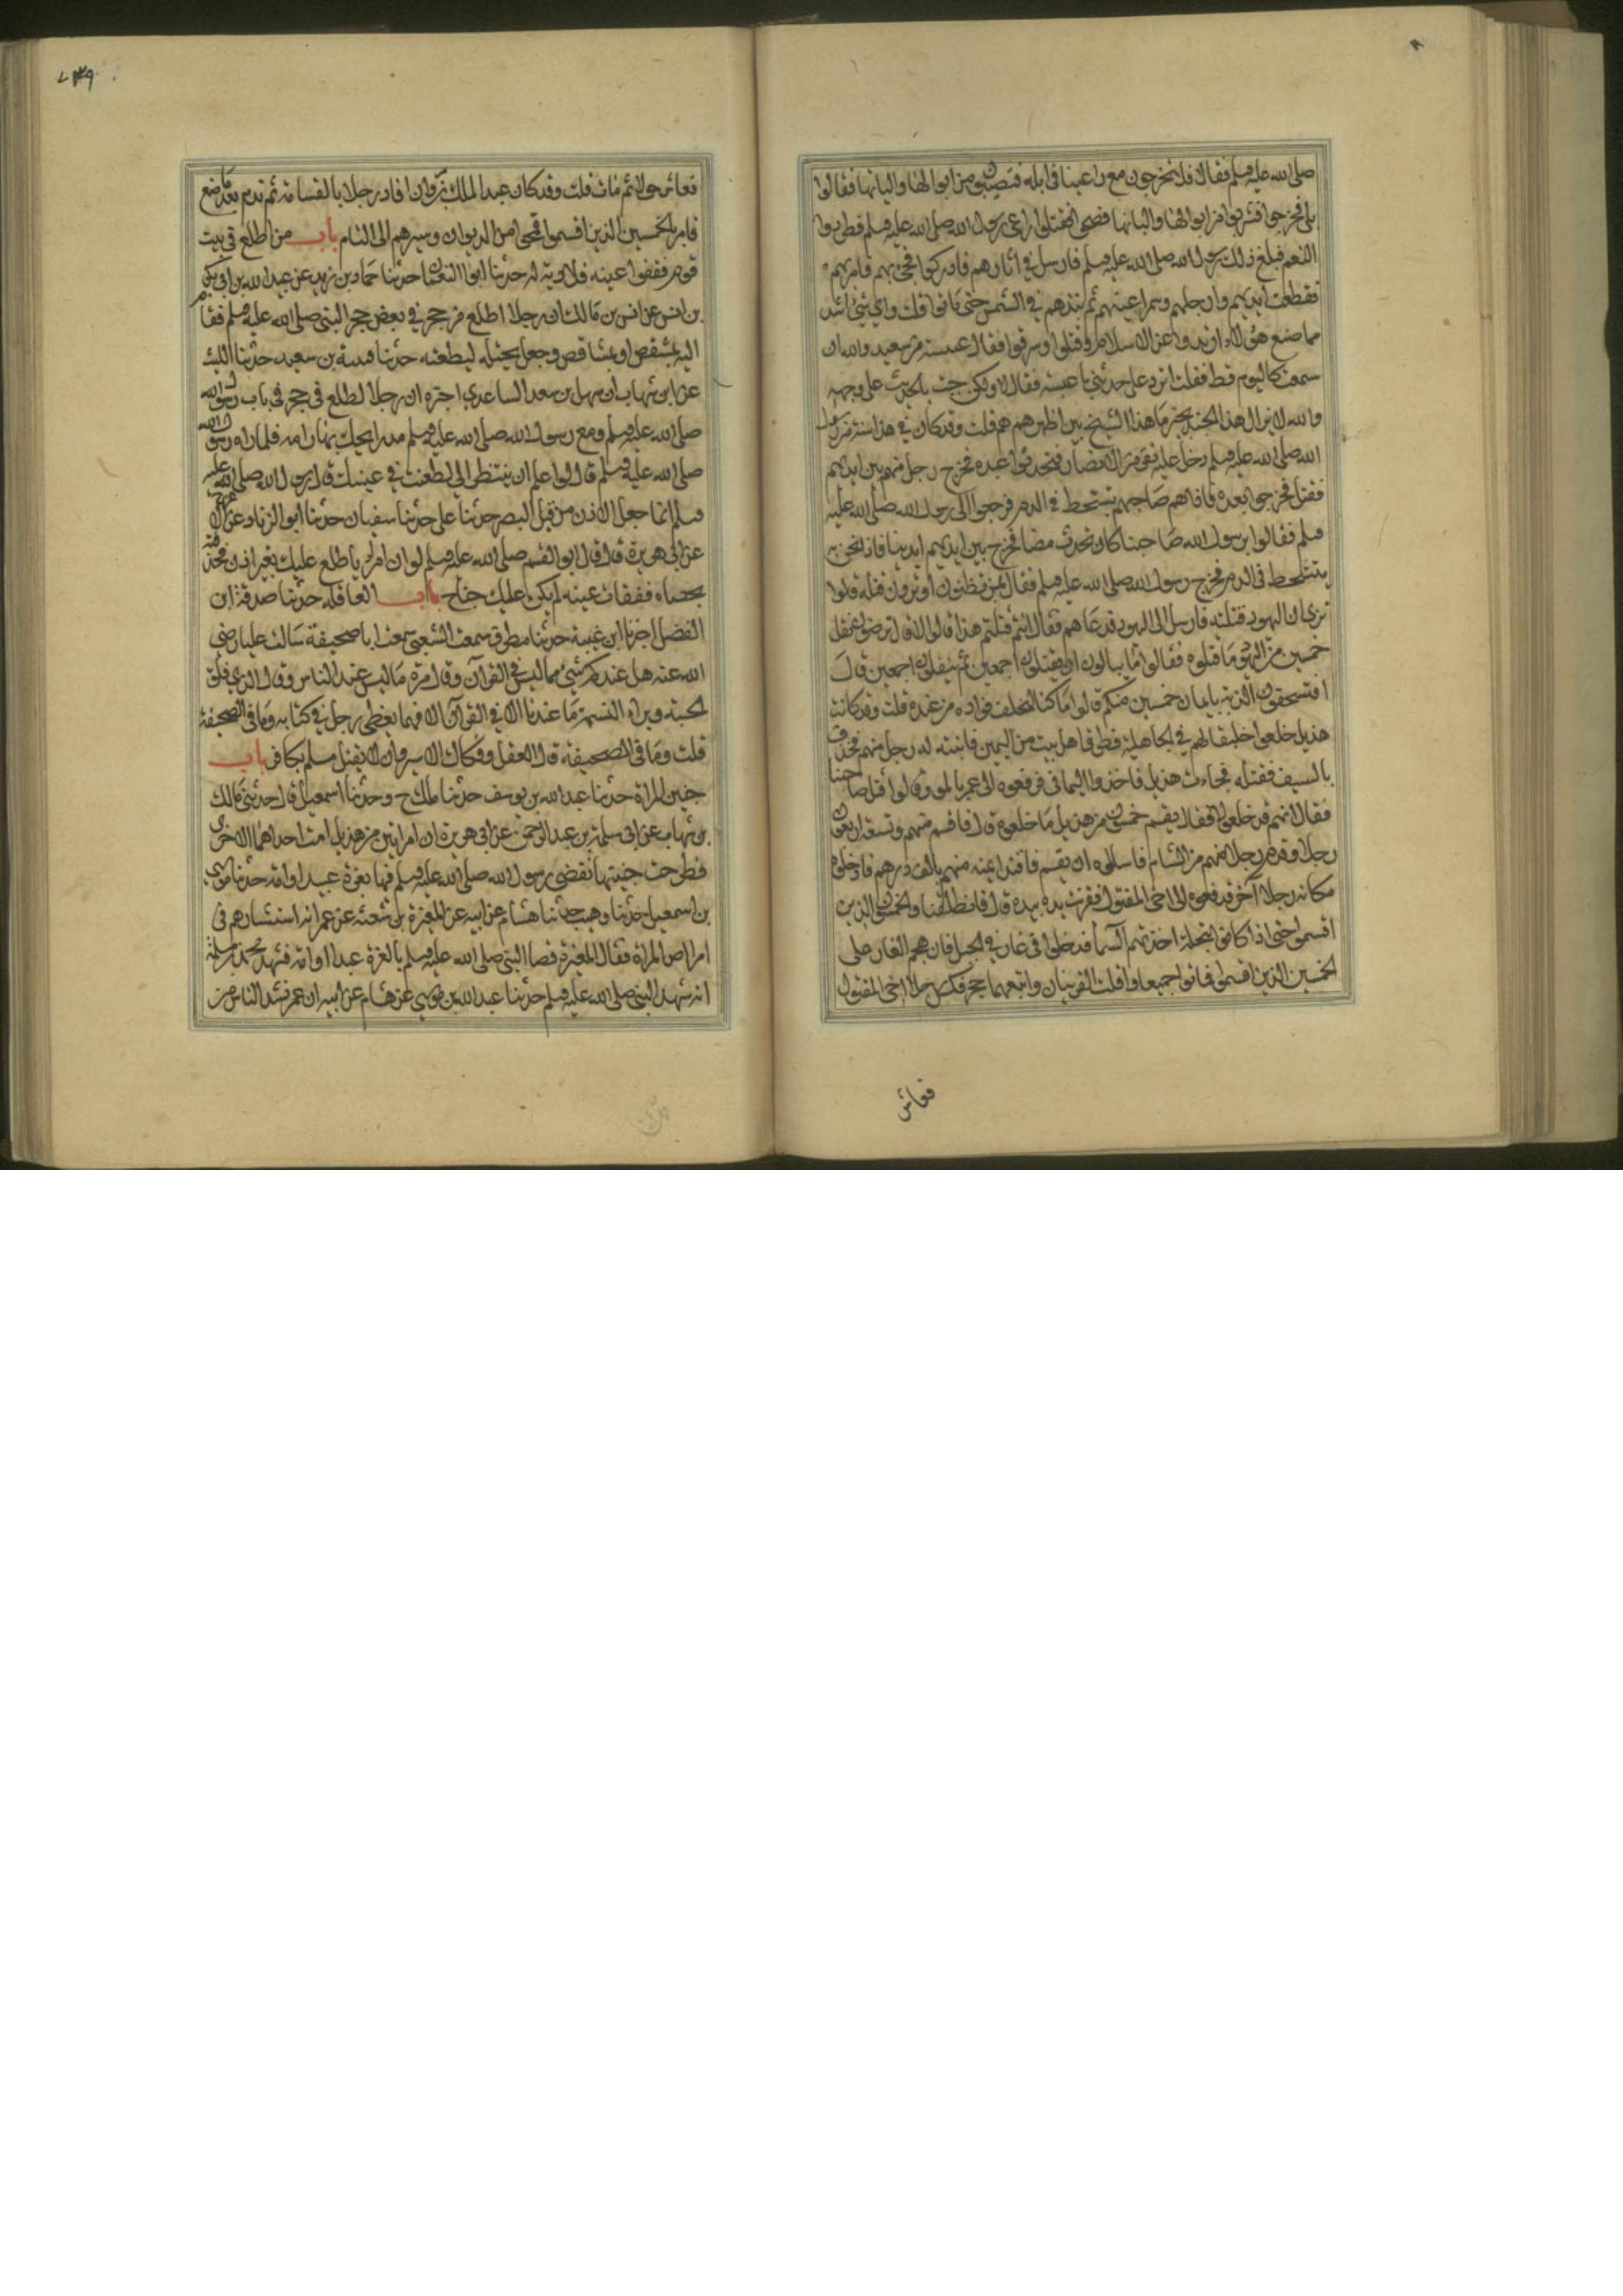 صلى الله عليه وسلم فقال افلا تخرجون مع راعينا في ابله فتصيبون من ابوالها والبانها فقالوا
بلى فخرجوا فشربوا من ابوالها والبانها فصحوا فقتلوا راعي رسول الله صلى الله عليه وسلم فطردوا
النعم فبلغ ذلك رسول الله صلى الله عليه وسلم فارسل في اثارهم فادركوا فجئ بهم فامر بهم
فقطعت ايديهم وارجلهم وسمر اعينهم ثم نبذهم في الشمس حتى ماتوا قلت واي شئ اشد
مما صنع هؤلاء ارتدوا عن الاسلام وقتلوا وسرقوا فقال عنبسة بن سعيد والله ان
سمعت كاليوم قط فقلت اترد علي حديثي يا عنبسة فقال لا ولكن جئت بالحديث على وجهه
والله لا يزال هذا الجند بخير ما هذا الشيخ بين اظهرهم قلت وقد كان في هذا سنة من رسول
الله صلى الله عليه وسلم دخل عليه نفر من الانصار فتحدثوا عنده فخرج رجل منهم بين ايديهم
فقتل فخرجوا بعده فاذا هم بصاحبهم يتشحط في الدم فرجعوا الى رسول الله صلى الله عليه
وسلم فقالوا يرسول الله صاحبنا كان تحدث معنا فخرج بين ايديهم ايدينا فاذا نحن به
يتشحط في الدم فخرج رسول الله صلى الله عليه وسلم فقال بمن تظنون او ترون قتله قالوا
نرى ان اليهود قتلته فارسل الى اليهود فدعاهم فقال انتم قتلتم هذا قالوا لا قال ترضون نفل
خمسين من اليهود ما قتلوه فقالوا ما يبالون ان يقتلون اجمعين ثم ينفلون اجمعين قال
افتستحقون الدية بايمان خمسين منكم قالوا ما كنا لنحلف فواده من عنده قلت وقد كانت
هذيل خلعوا خليعا لهم في الجاهلية فطرق اهل بيت من اليمن فانتبه له رجل منهم فحذفه
بالسيف فقتله فجاءت هذيل فاخذوا اليماني فرفعوه الى عمر بالموسم وقالوا قتل صاحبنا
فقال انهم قد خلعوه فقال يقسم خمسون من هذيل ما خلعوه قال فاقسم منهم وتسعة اربعون
رجلا وقدم رجل منهم من الشام فاسالوه ان يقسم فافتدا يمينه منهم بالف درهم فادخلوا
مكانه رجلا آخر فدفعوه الى اخي المقتول فقرنت يده بيده قال فانطلقنا والخمسون الذين
اقسموا حتى اذا كانوا بنخلة اخذتهم السما فدخلوا في غار في الجبل فانهجم الغار على
الخمسين الذين اقسموا فماتوا جميعا وافلت القرينان واتبعهما حجر فكسر رجل اخي المقتول
فعاش
۷۳۹
فعاش حولا ثم مات قلت وقد كان عبد الملك بن مروان اقاد رجلا بالقسامة ثم ندم بعد ما صنع
فامر بالخمسين الذين اقسموا فمحوا من الديوان وسيرهم الى الشام باب من اطلع في بيت
قوم ففقؤا عينه فلا دية له حدثنا ابو النعمان حدثنا حماد بن زيد عن عبيد الله بن ابي بكر
بن انس عن انس بن مالك ان رجلا اطلع من حجر في بعض حجر النبي صلى الله عليه وسلم فقام
اليه بمشقص او بمشاقص وجعل يختله ليطعنه حدثنا قتيبة بن سعيد حدثنا الليث
عن ابن شهاب ان سهل بن سعد الساعدي اخبره ان رجلا اطلع في حجر في باب رسول الله
صلى الله عليه وسلم ومع رسول الله صلى الله عليه وسلم مدرا يحك بها راسه فلما راه رسول الله
صلى الله عليه وسلم قال لو اعلم ان ينتظرني لطعنت في عينيك قال رسول الله صلى الله عليه
وسلم انما جعل الاذن من قبل البصر حدثنا علي حدثنا سفيان حدثنا ابو الزناد عن الاعرج
عن ابي هريرة قال قال ابو القسم صلى الله عليه وسلم لو ان امرا اطلع عليك بغير اذن فخذفته
بحصاة ففقات عينه لم يكن عليك جناح باب العاقلة حدثنا صدقة ابن
الفضل اخبرنا ابن عيينة حدثنا مطرف سمعت الشعبي سمعت ابا صحيفة سالت عليا رضي
الله عنه هل عندكم شئ مما ليس في القرآن وقال مرة ما ليس عند الناس وقال الذي فلق
الحبة وبراء النسمة ما عندنا الا في القرآن الا فهما يعطى رجل في كتابه وما في الصحيفة
قلت وما في الصحيفة قال العقل وفكاك الاسير وان لا يقتل مسلم بكافر باب
جنين المراة حدثنا عبد الله بن يوسف حدثنا ملك ح وحدثنا اسمعيل قال حدثني مالك
بن شهاب عن ابي سلمة بن عبد الرحمن عن ابي هريرة ان امراتين من هذيل رمت احداهما الاخرى
فطرحت جنينها فقضى رسول الله صلى الله عليه وسلم فيها بغرة عبد او امة حدثنا موسى
بن اسمعيل حدثنا وهيب حدثنا هشام عن ابيه عن المغيرة بن شعبة عن عمر انه استشارهم في
املاص المراة فقال المغيرة قضا النبي صلى الله عليه وسلم بالغرة عبد او امة فشهد محمد بن مسلمة
انه شهد النبي صلى الله عليه وسلم حدثنا عبد الله بن موسى عن هشام عن ابيه ان عمر نشد الناس من